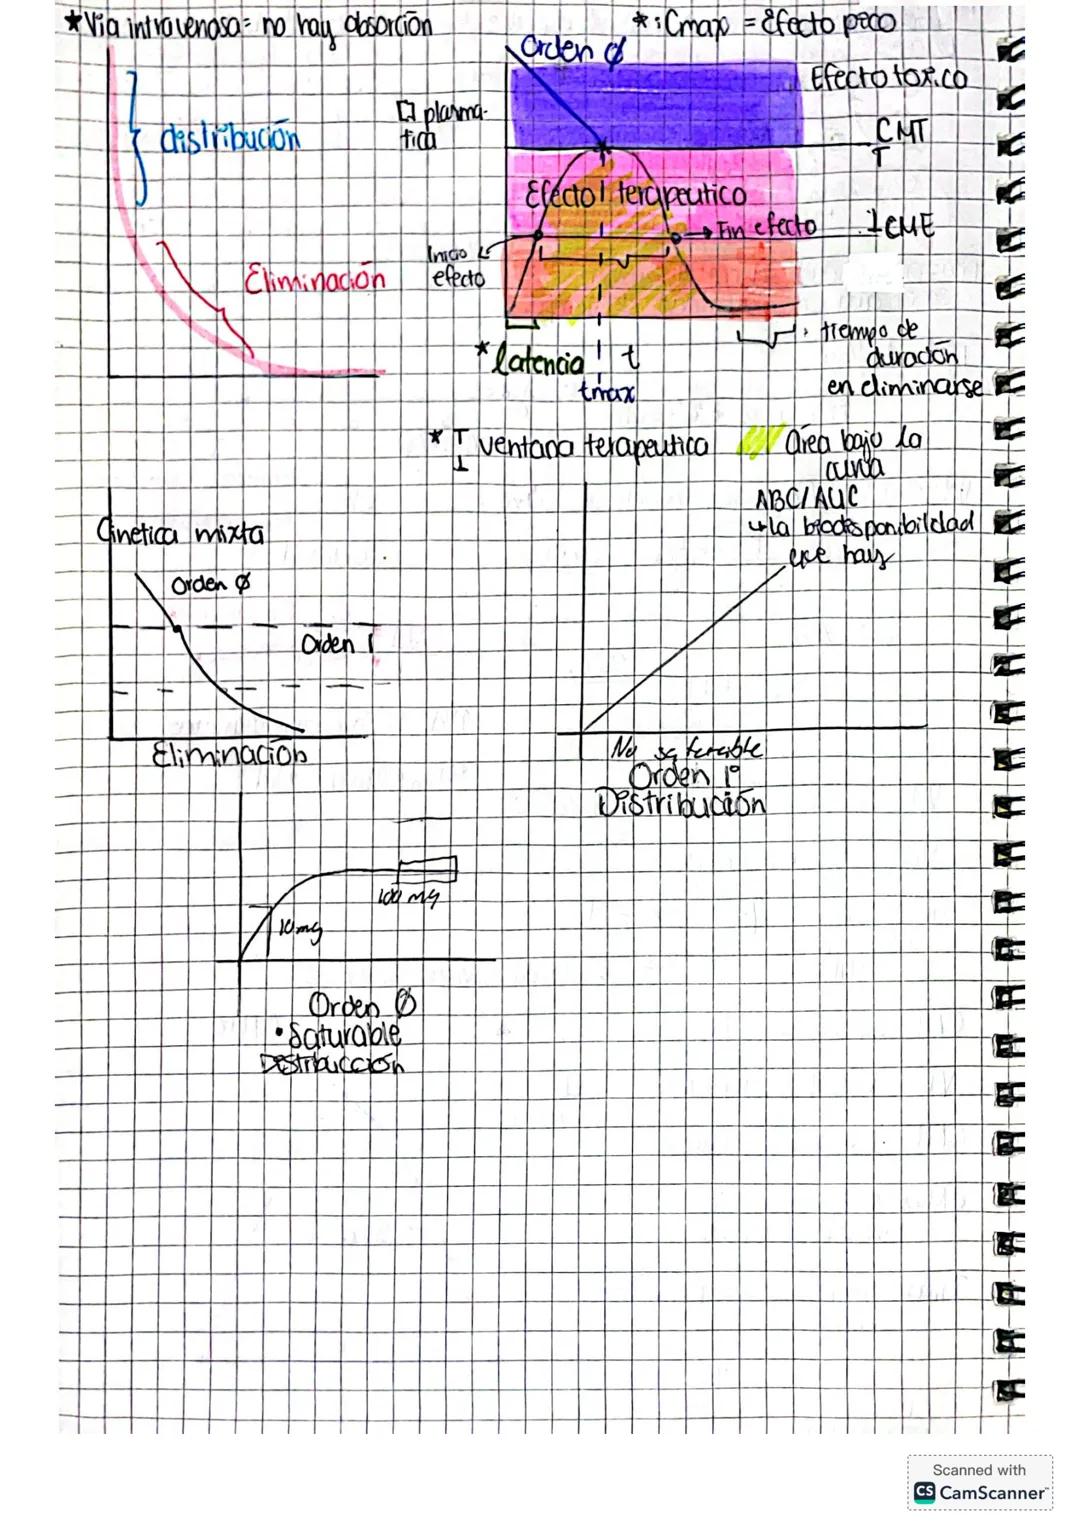 ★Via intravenosa = no hay absorción
*: Cmax = Efecto pico
Orden ∅
Efecto toxico
[] plasma-
tica
distribución
CMT
T
Efecto terapeutico
→ Fin efecto
⊥ CME
Inicio
efecto
Eliminación
: tiempo de
duración
en eliminarse
*latencia
t
tmax
* ventana terapeutica
área bajo la
curva
ABC/AUC
↳la biodisponibilidad
que hay
Cinetica mixta
Orden ∅
Orden 1
Eliminación
No saturable
Orden 1°
Distribución
100 mg
10mg
Orden ∅
• Saturable
Distribucción
Scanned with
CS CamScanner